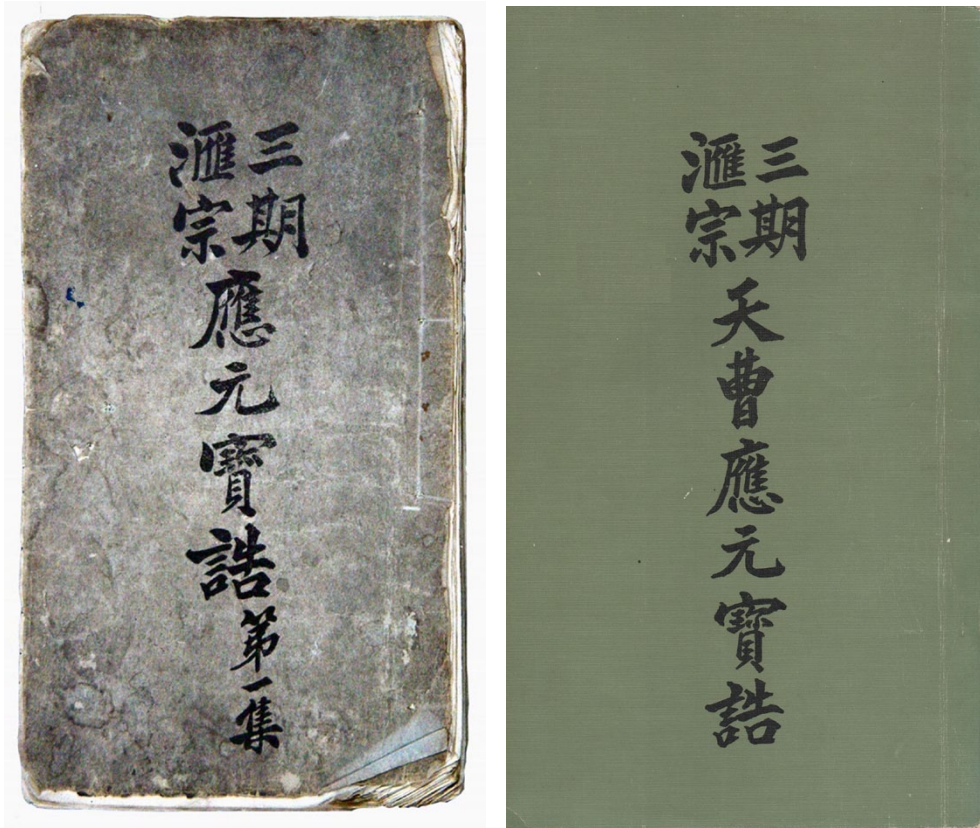 三期
滙宗
應元寶誥
第一集
三期
滙宗
天曹應元寶誥